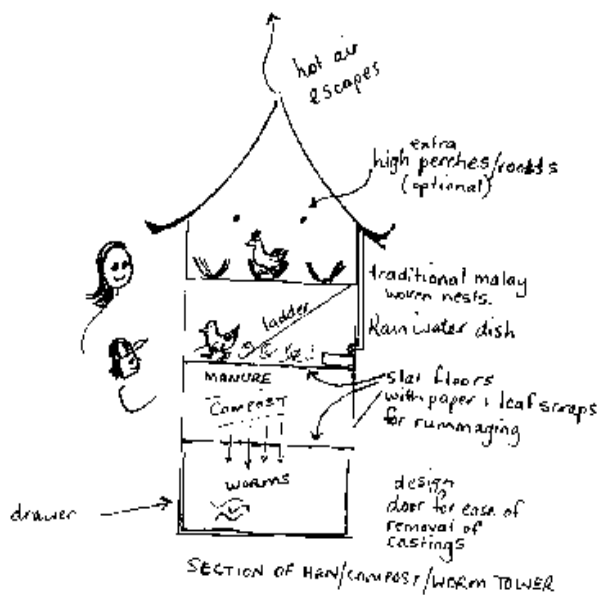 hot air
escapes
extra
high perches/roosts
(optional)
traditional malay
woven nests.
ladder
Rain water dish
MANURE
slat floors
COMPOST
with paper + leaf scraps
for rummaging
WORMS
drawer
design
door for ease of
removal of
castings
SECTION OF HEN/COMPOST/WORM TOWER